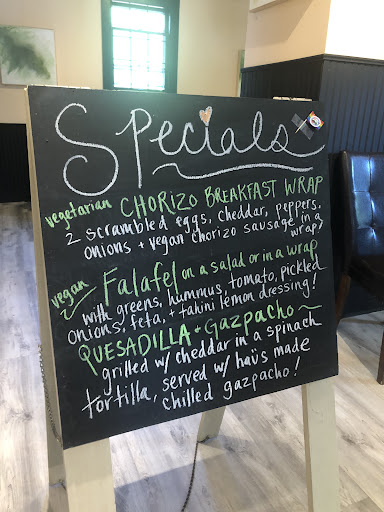 Specials
vegetarian CHORIZO BREAKFAST WRAP
2 scrambled eggs, cheddar, peppers,
onions + vegan chorizo sausage in a
wrap!
vegan Falafel on a salad or in a wrap
with greens, hummus, tomato, pickled
onions, feta, + tahini lemon dressing!
QUESADILLA + Gazpacho ~
grilled w/ cheddar in a spinach
tortilla, served w/ haüs made
chilled gazpacho!